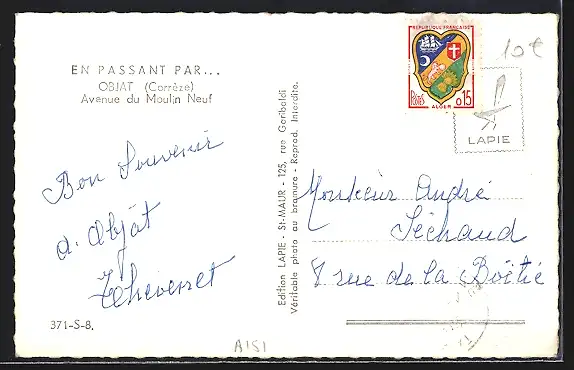 EN PASSANT PAR...
OBJAT (Corrèze)
Avenue du Moulin Neuf
Bon Souvenir
d'Objat
Thevenet
371-S-8.
A151
Edition LAPIE - St-MAUR - 125, rue Garibaldi
Véritable photo au bromure - Reprod. Interdite.
REPUBLIQUE FRANÇAISE
POSTES
0,15
ALGER
10€
LAPIE
Monsieur André
Séchaud
8 rue de la Boëtie